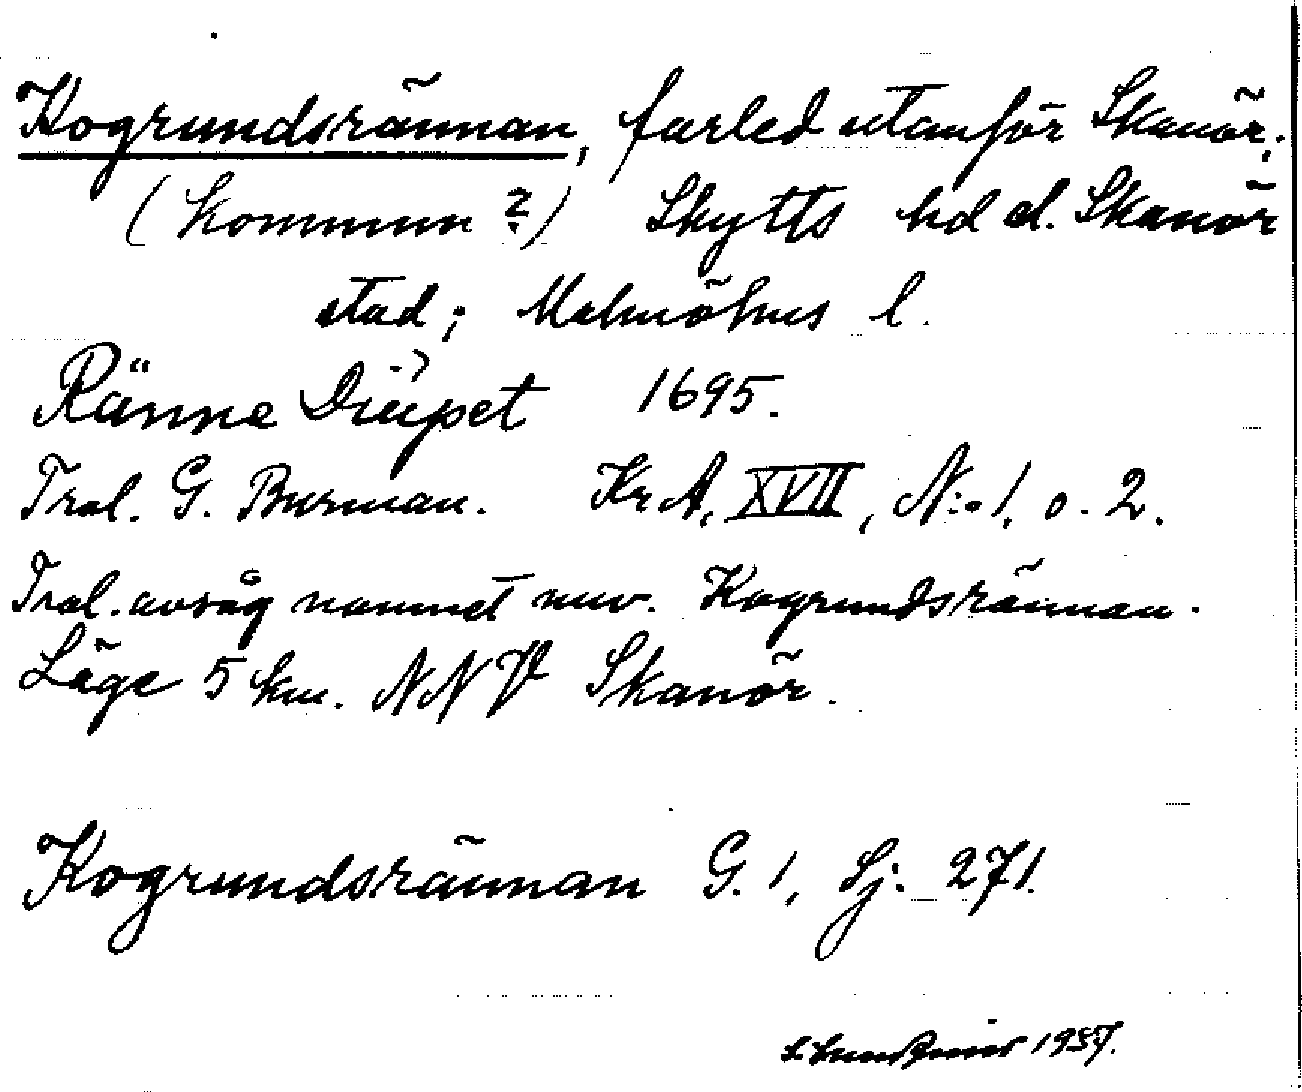 Kogrundsrännan, farled utanför Skanör.
(kommun ?) Skytts hd el. Skanör
stad; Malmöhus l.
Ränne Diüpet 1695.
Trol. G. Burman. Kr A, XVII, N:o 1, o. 2.
Trol. avsåg namnet nuv. Kogrundsrännan.
Läge 5 km. NNV Skanör.
Kogrundsrännan G. 1, Sj. 271.
1937.